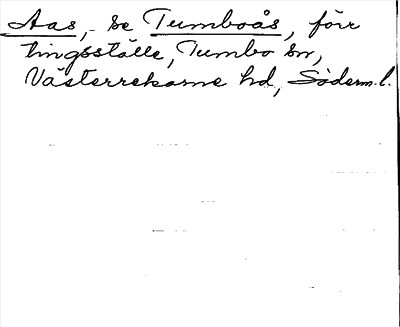 Aas, - se Tumboås, förr
tingsställe, Tumbo sn,
Västerrekarne hd, Söderm.l.